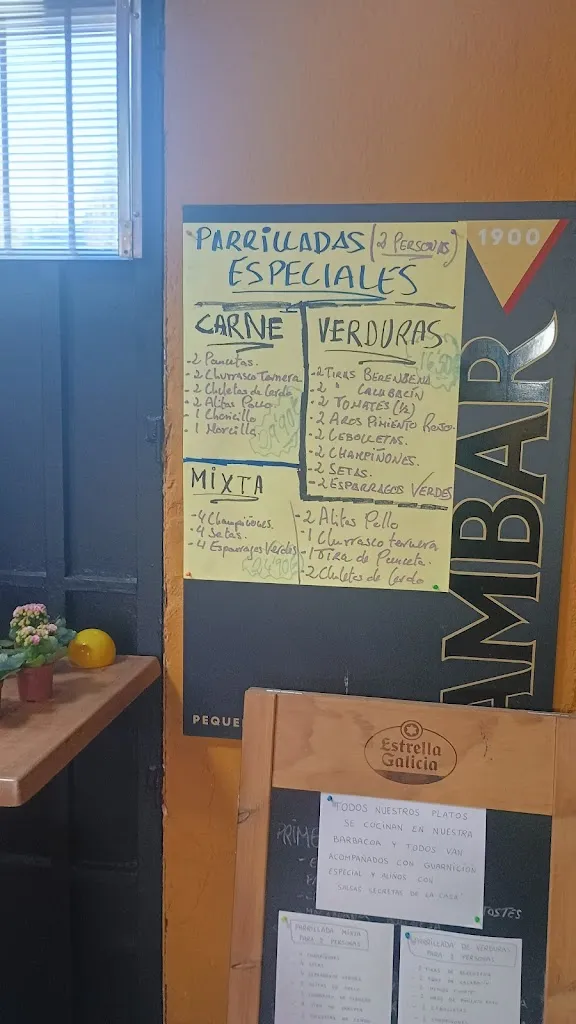 PARRILLADAS (2 PERSONAS)
ESPECIALES
CARNE
- 2 Pancetas.
- 2 Churrasco Ternera
- 2 Chuletas de Cerdo
- 2 Alitas Pollo
- 1 Choricillo
- 1 Morcilla
VERDURAS
16,50
- 2 TIRAS BERENGENA
- 2 " CALABACÍN
- 2 TOMATES (1/2)
- 2 AROS PIMIENTO ROJO.
- 2 CEBOLLETAS.
- 2 CHAMPIÑONES.
- 2 SETAS.
- 2 ESPARRAGOS VERDES
MIXTA
- 4 Champiñones.
- 4 Setas.
- 4 Esparragos Verdes
- 2 Alitas Pollo
- 1 Churrasco ternera
- 1 Tira de Panceta.
- 2 Chuletas de Cerdo
1900
AMBAR
PEQUE
Estrella
Galicia
PRIME
TODOS NUESTROS PLATOS
SE COCINAN EN NUESTRA
BARBACOA Y TODOS VAN
ACOMPAÑADOS CON GUARNICIÓN
ESPECIAL Y ALIÑOS CON
SALSAS SECRETAS DE LA CASA
OSTES
PARRILLADA MIXTA
PARA 2 PERSONAS
PARRILLADA DE VERDURAS
PARA 2 PERSONAS